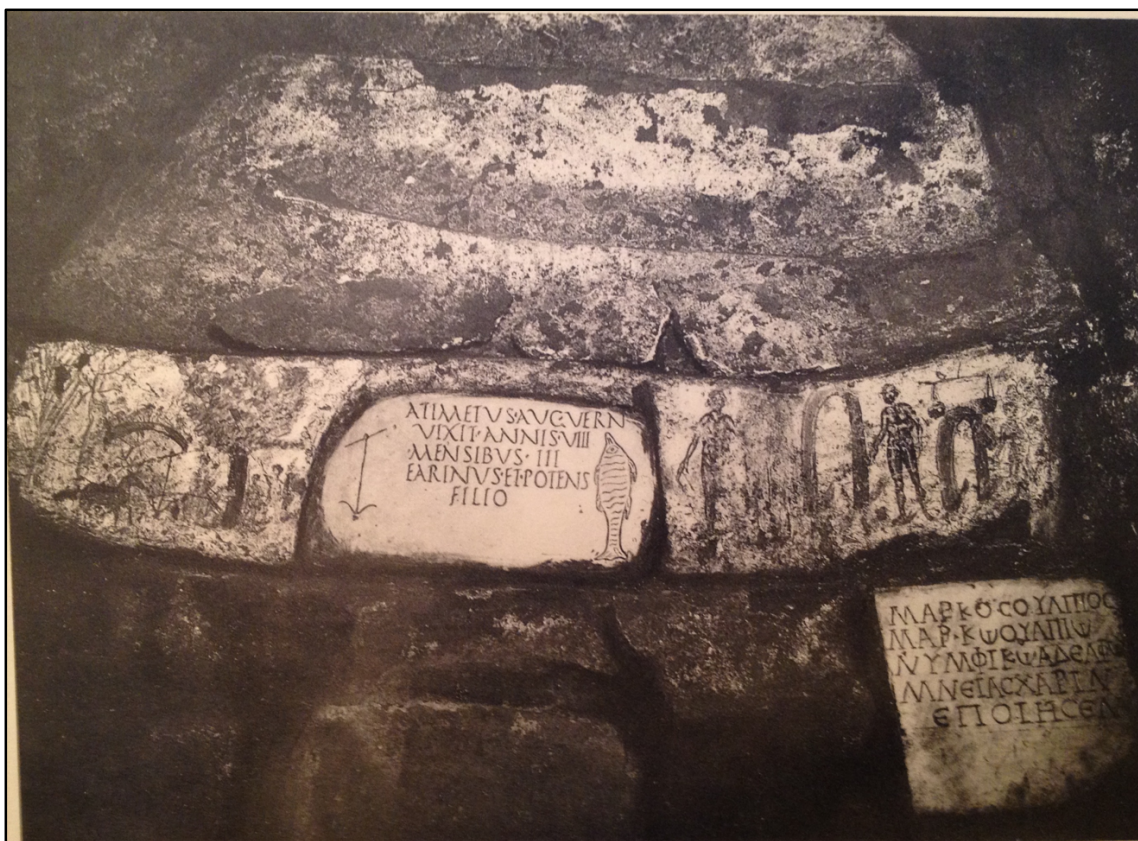 ATIMETUS·AUG·VERN
VIXIT·ANNIS·VIII
MENSIBUS·III
EARINUS·ET·POTENS
FILIO
ΜΑΡΚΟϹΟΥΛΠΙΟϹ
ΜΑΡ·ΚѠΟΥΛΠΙѠ
ΝΥΜΦΙΚѠΑΔΕΛΦѠ
ΜΝΕΙΑϹΧΑΡΙΝ
ΕΠΟΙΗϹΕΝ